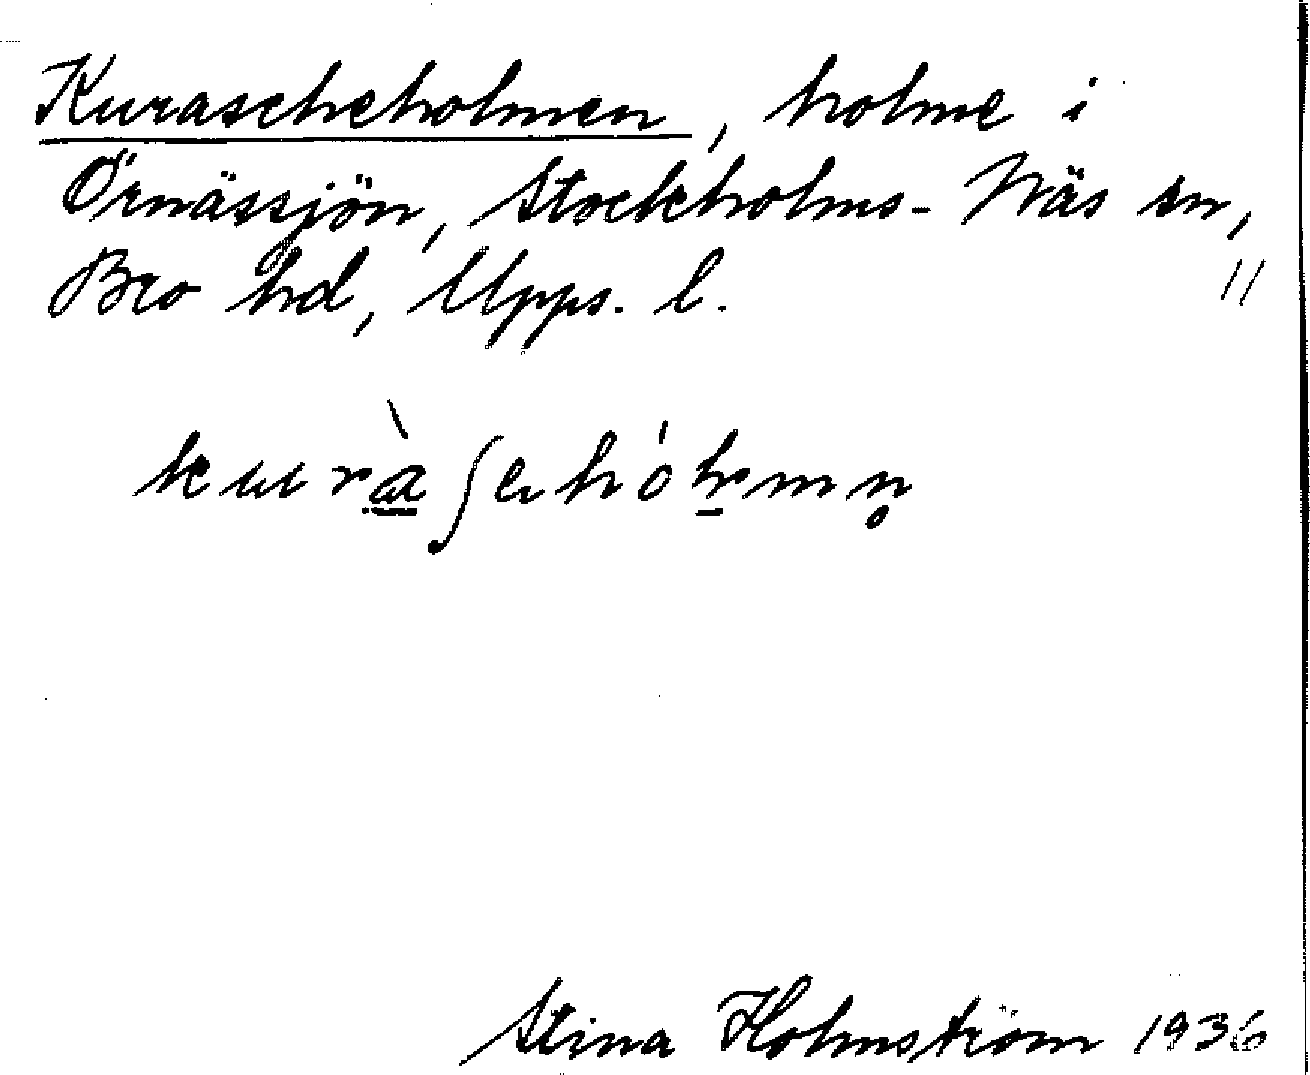 Kurascheholmen, holme i
Örnässjön, Stockholms-Näs sn,
Bro hd, Upps. l. 11
Stina Holmström 1936